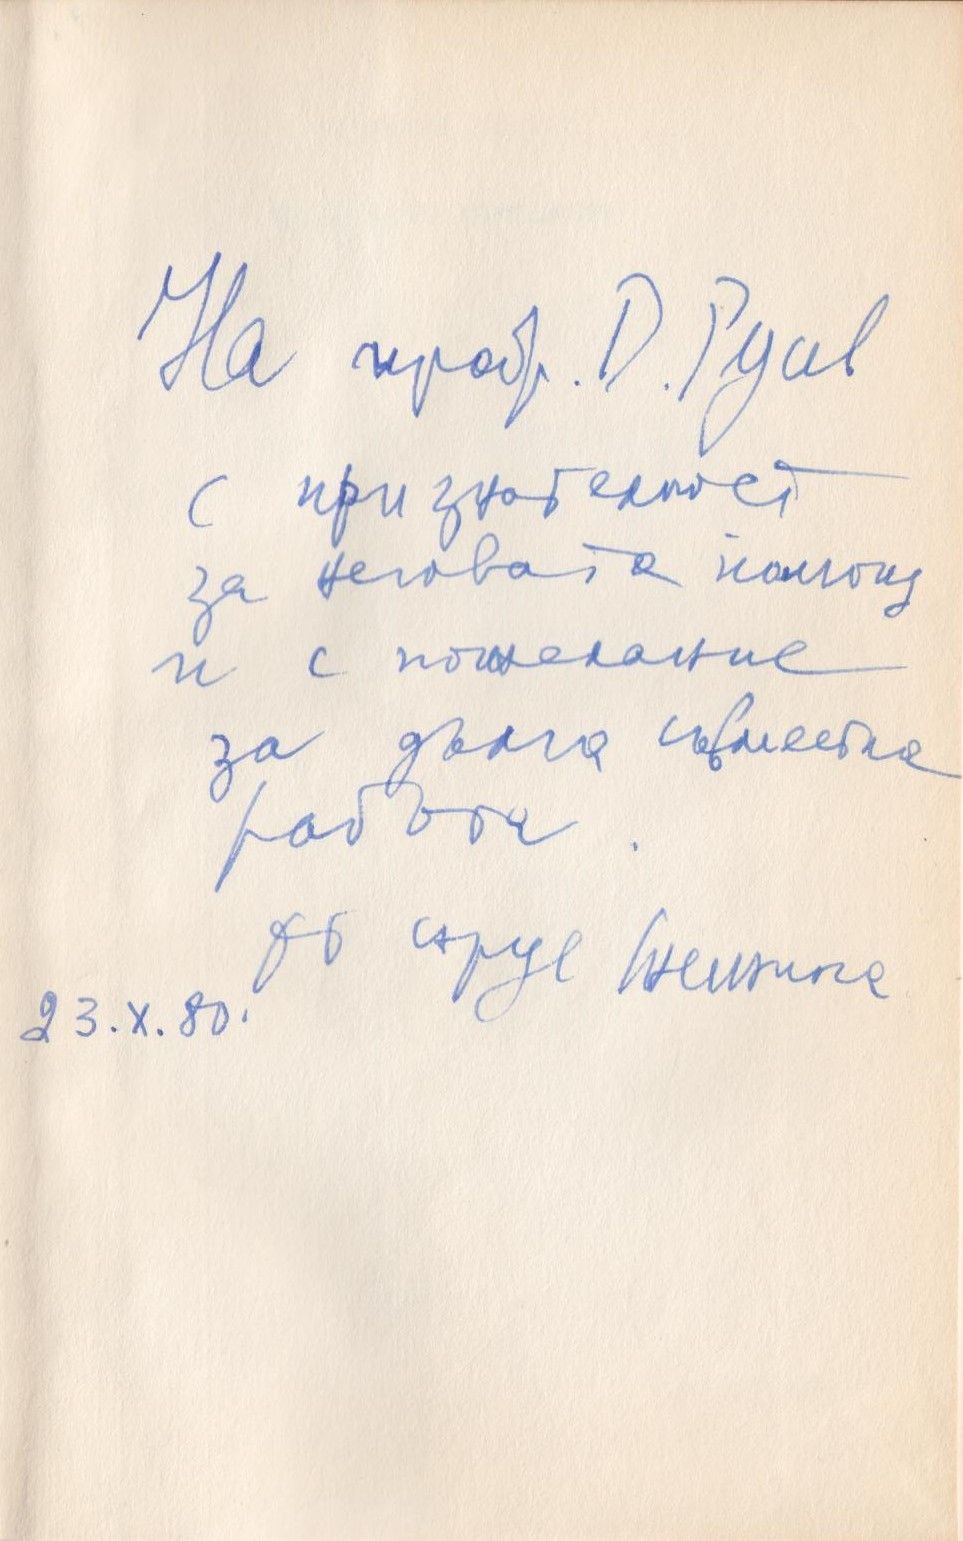 На проф. Д. Русев
с признателност
за неговата помощ
и с пожелание
за дълга съвместна
работа.
23.X.80.